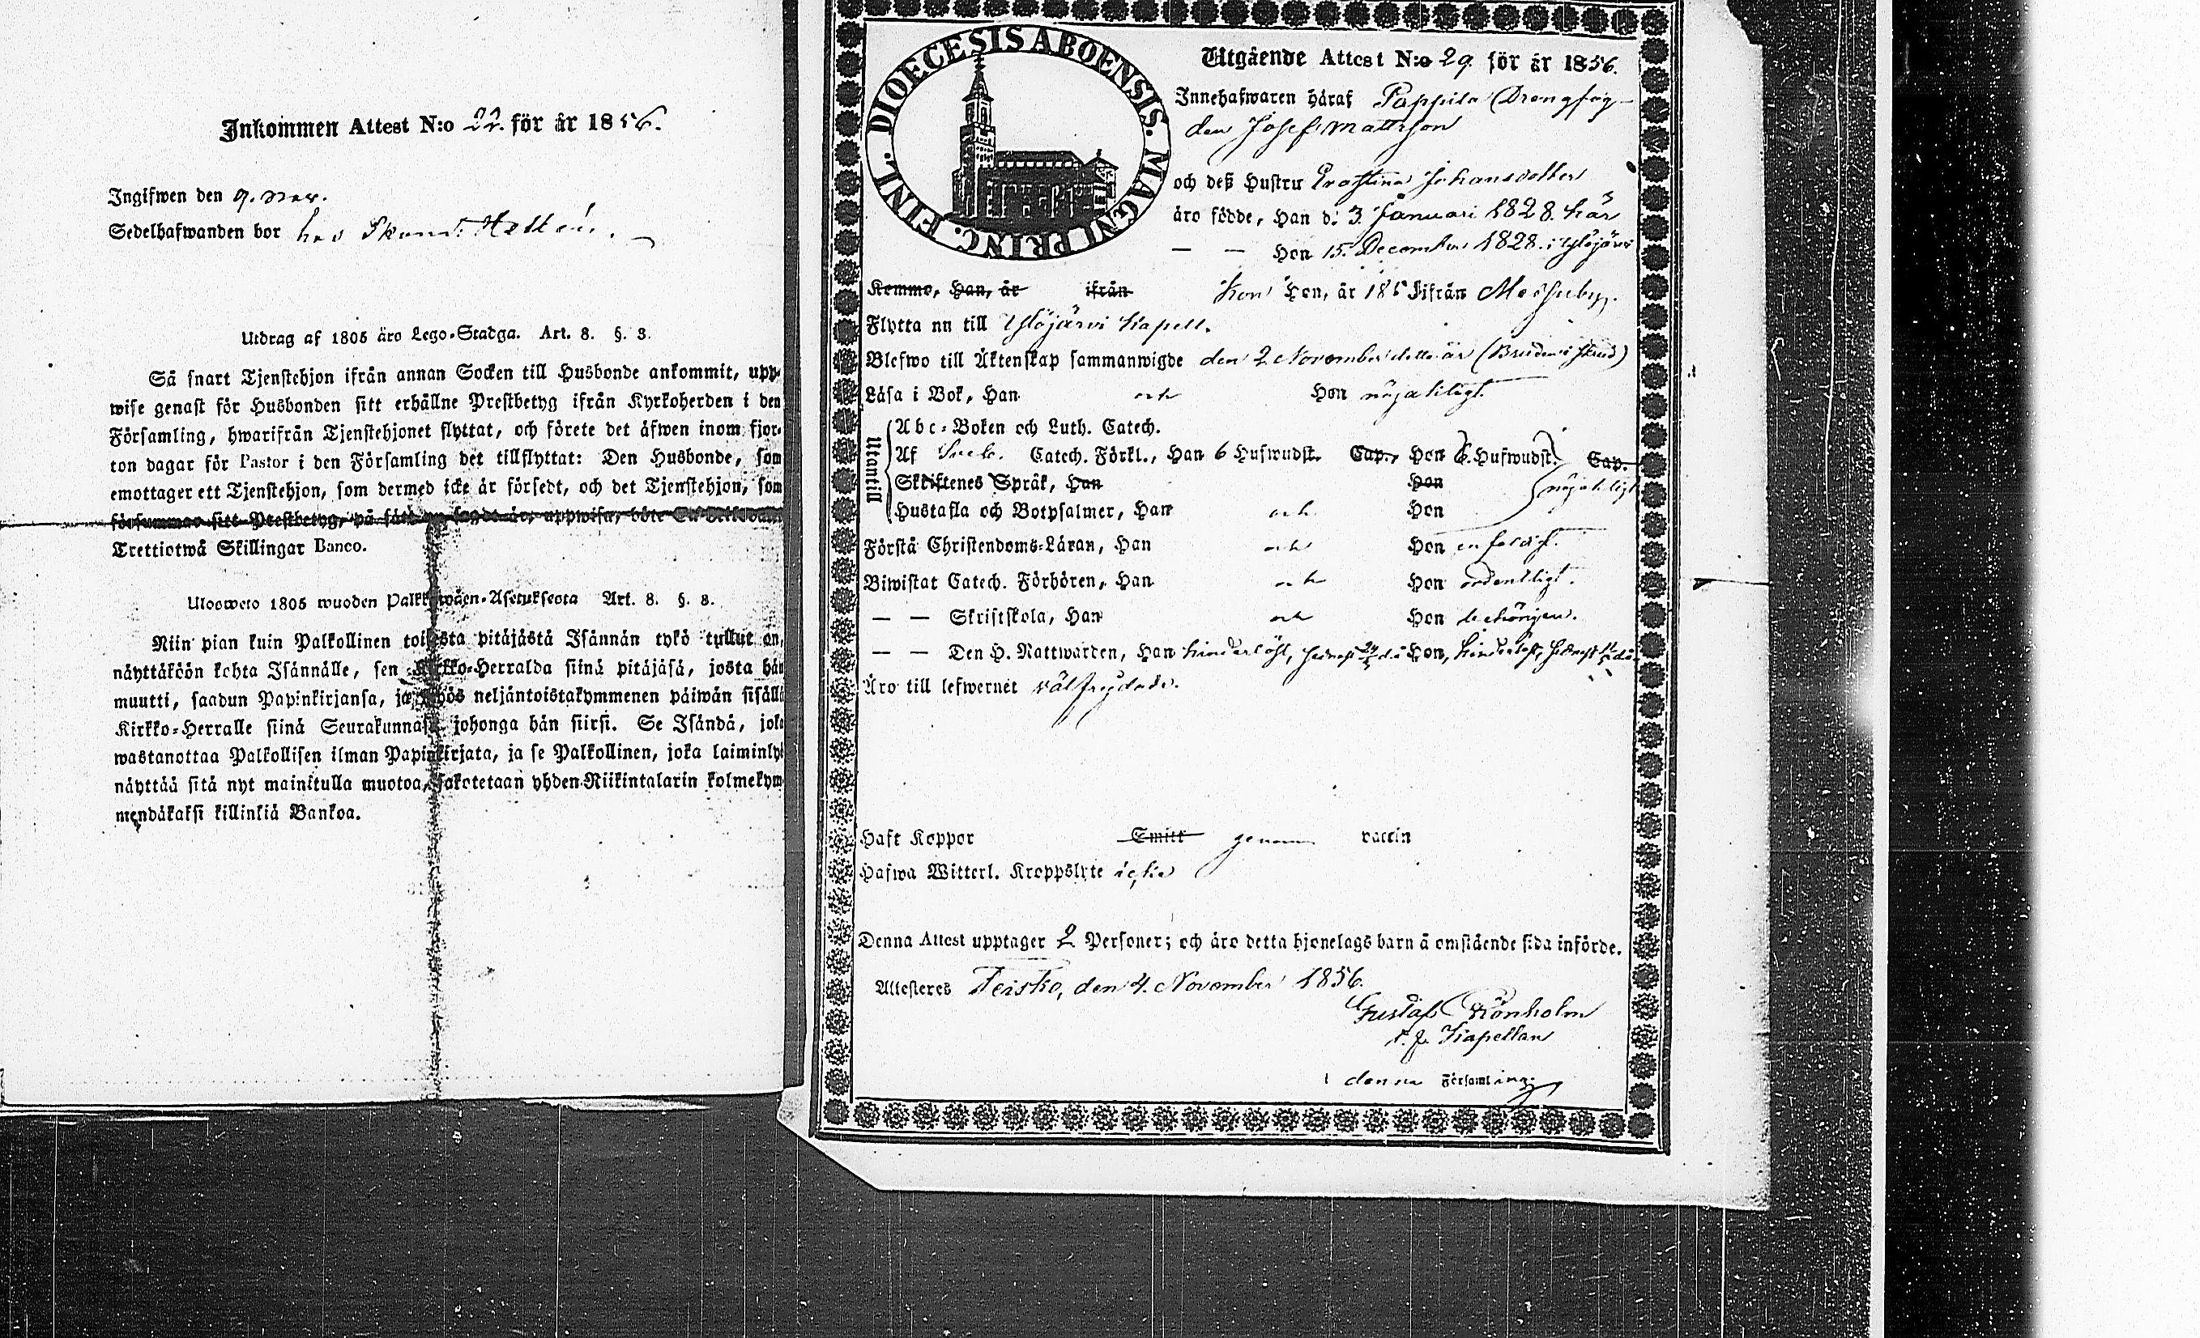 Inkommen Attest N:o 22. för år 1856.
Ingifwen den 9. Nov.
Sedelhafwanden bor hos
Utdrag af 1805 års Lego-Stadga. Art. 8. §. 3.
Så snart Tjenstehjon ifrån annan Socken till Husbonde ankommit, upp-
wise genast för Husbonden sitt erhållne Prestbetyg ifrån Kyrkoherden i den
Församling, hwarifrån Tjenstehjonet flyttat, och förete det äfwen inom fjor-
ton dagar för Pastor i den Församling det tillflyttat: Den Husbonde, som
emottager ett Tjenstehjon, som dermed icke är försedt, och det Tjenstehjon, som
försummar sitt Prestbetyg, på sätt nu sagdt är, uppwisa, böte En Riksdaler
Trettiotwå Skillingar Banco.
Ulosweto 1805 wuoden Palkkawäen-Asetuksesta Art. 8. §. 3.
Niin pian kuin Palkollinen toisesta pitäjästä Isännän tykö tullut on,
näyttäköön kohta Isännälle, sen Kirkko-Herralda siinä pitäjäsä, josta hän
muutti, saadun Papinkirjansa, ja myös neljäntoistakymmenen päiwän sisällä
Kirkko-Herralle siinä Seurakunnasa, johonga hän siirsi. Se Isändä, joka
wastanottaa Palkollisen ilman Papinkirjata, ja se Palkollinen, joka laiminlyö
näyttää sitä nyt mainitulla muotoa, sakotetaan yhden Riikintalarin kolmekym-
mendäkaksi killinkiä Bankoa.
DIOECESIS ABOENSIS. MAGNI PRINC. FINL.
Utgående Attest N:o 29. för år 1856.
Innehafwaren häraf Pappila Drengfog-
den Josef Mattsson
och deß Hustru Johansdotter
äro födde, Han d: 3 Januari 1828. här
— — Hon 15. December 1828. i Ylöjärvi
Kommo, Han, år ifrån Kom Hon, år 185 ifrån Messuby.
Flytta nu till Ylöjärvi Kapell.
Blefwo till Äktenskap sammanwigde den 2 November detta år (Bruden i skrud)
Läsa i Bok, Han och Hon nöjaktigt.
Utantill
Abc-Boken och Luth. Catech.
Af Sveb. Catech. Förkl., Han 6 Hufwudst. Cap., Hon 6. Hufwudst. Cap.
Skriftenes Språk, Han Hon nöjaktigt
Hustafla och Botpsalmer, Han och Hon
Förstå Christendoms-Läran, Han och Hon enfaldigt.
Biwistat Catech. Förhören, Han och Hon ordentligt.
— — Skriftskola, Han och Hon behörigen.
— — Den H. Nattwarden, Han hinderlöst, senast Hon, hinderlöst, senast
Äro till lefwernet välfrejdade.
Haft Koppor Smitt genom vaccin
Hafwa Witterl. Kroppslyte icke
Denna Attest upptager 2 Personer; och äro detta hjonelags barn å omstående sida införde.
Attesteres Teisko, den 4. November 1856.
Gustaf Rönholm
t.f. Kapellan
i denna Församling